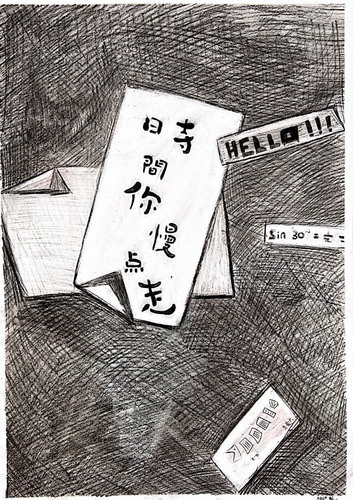 時
間
你
慢
点
走
HELLO!!!
Sin 30° = ½ =